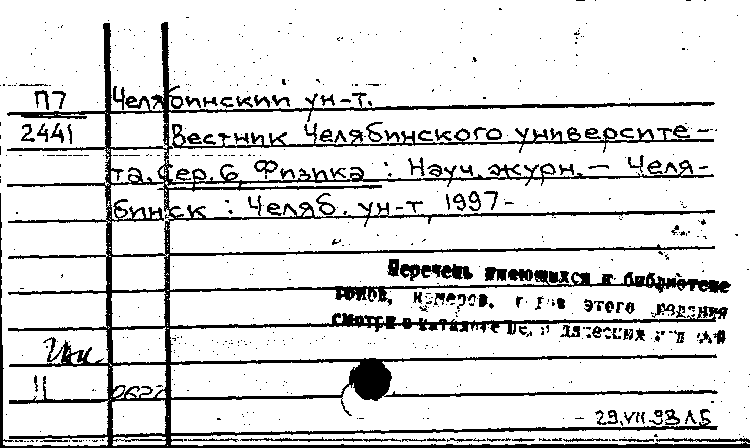 П7 Челябинский ун-т.
2441 Вестник Челябинского университе-
та. Сер. 6, Физика : Науч. журн. — Челя-
бинск : Челяб. ун-т, 1997-
Перечень имеющихся в библиотеке
томов, номеров, годов этого издания
смотри в каталоге периодических изданий
11
29.VII.93 ЛБ